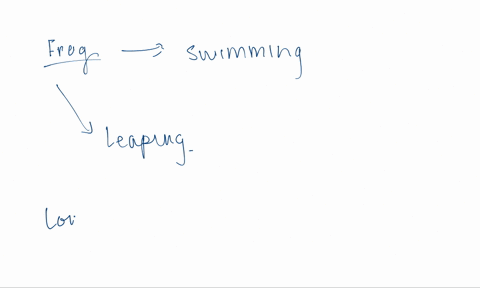 Frog → swimming
Leaping.
Loi